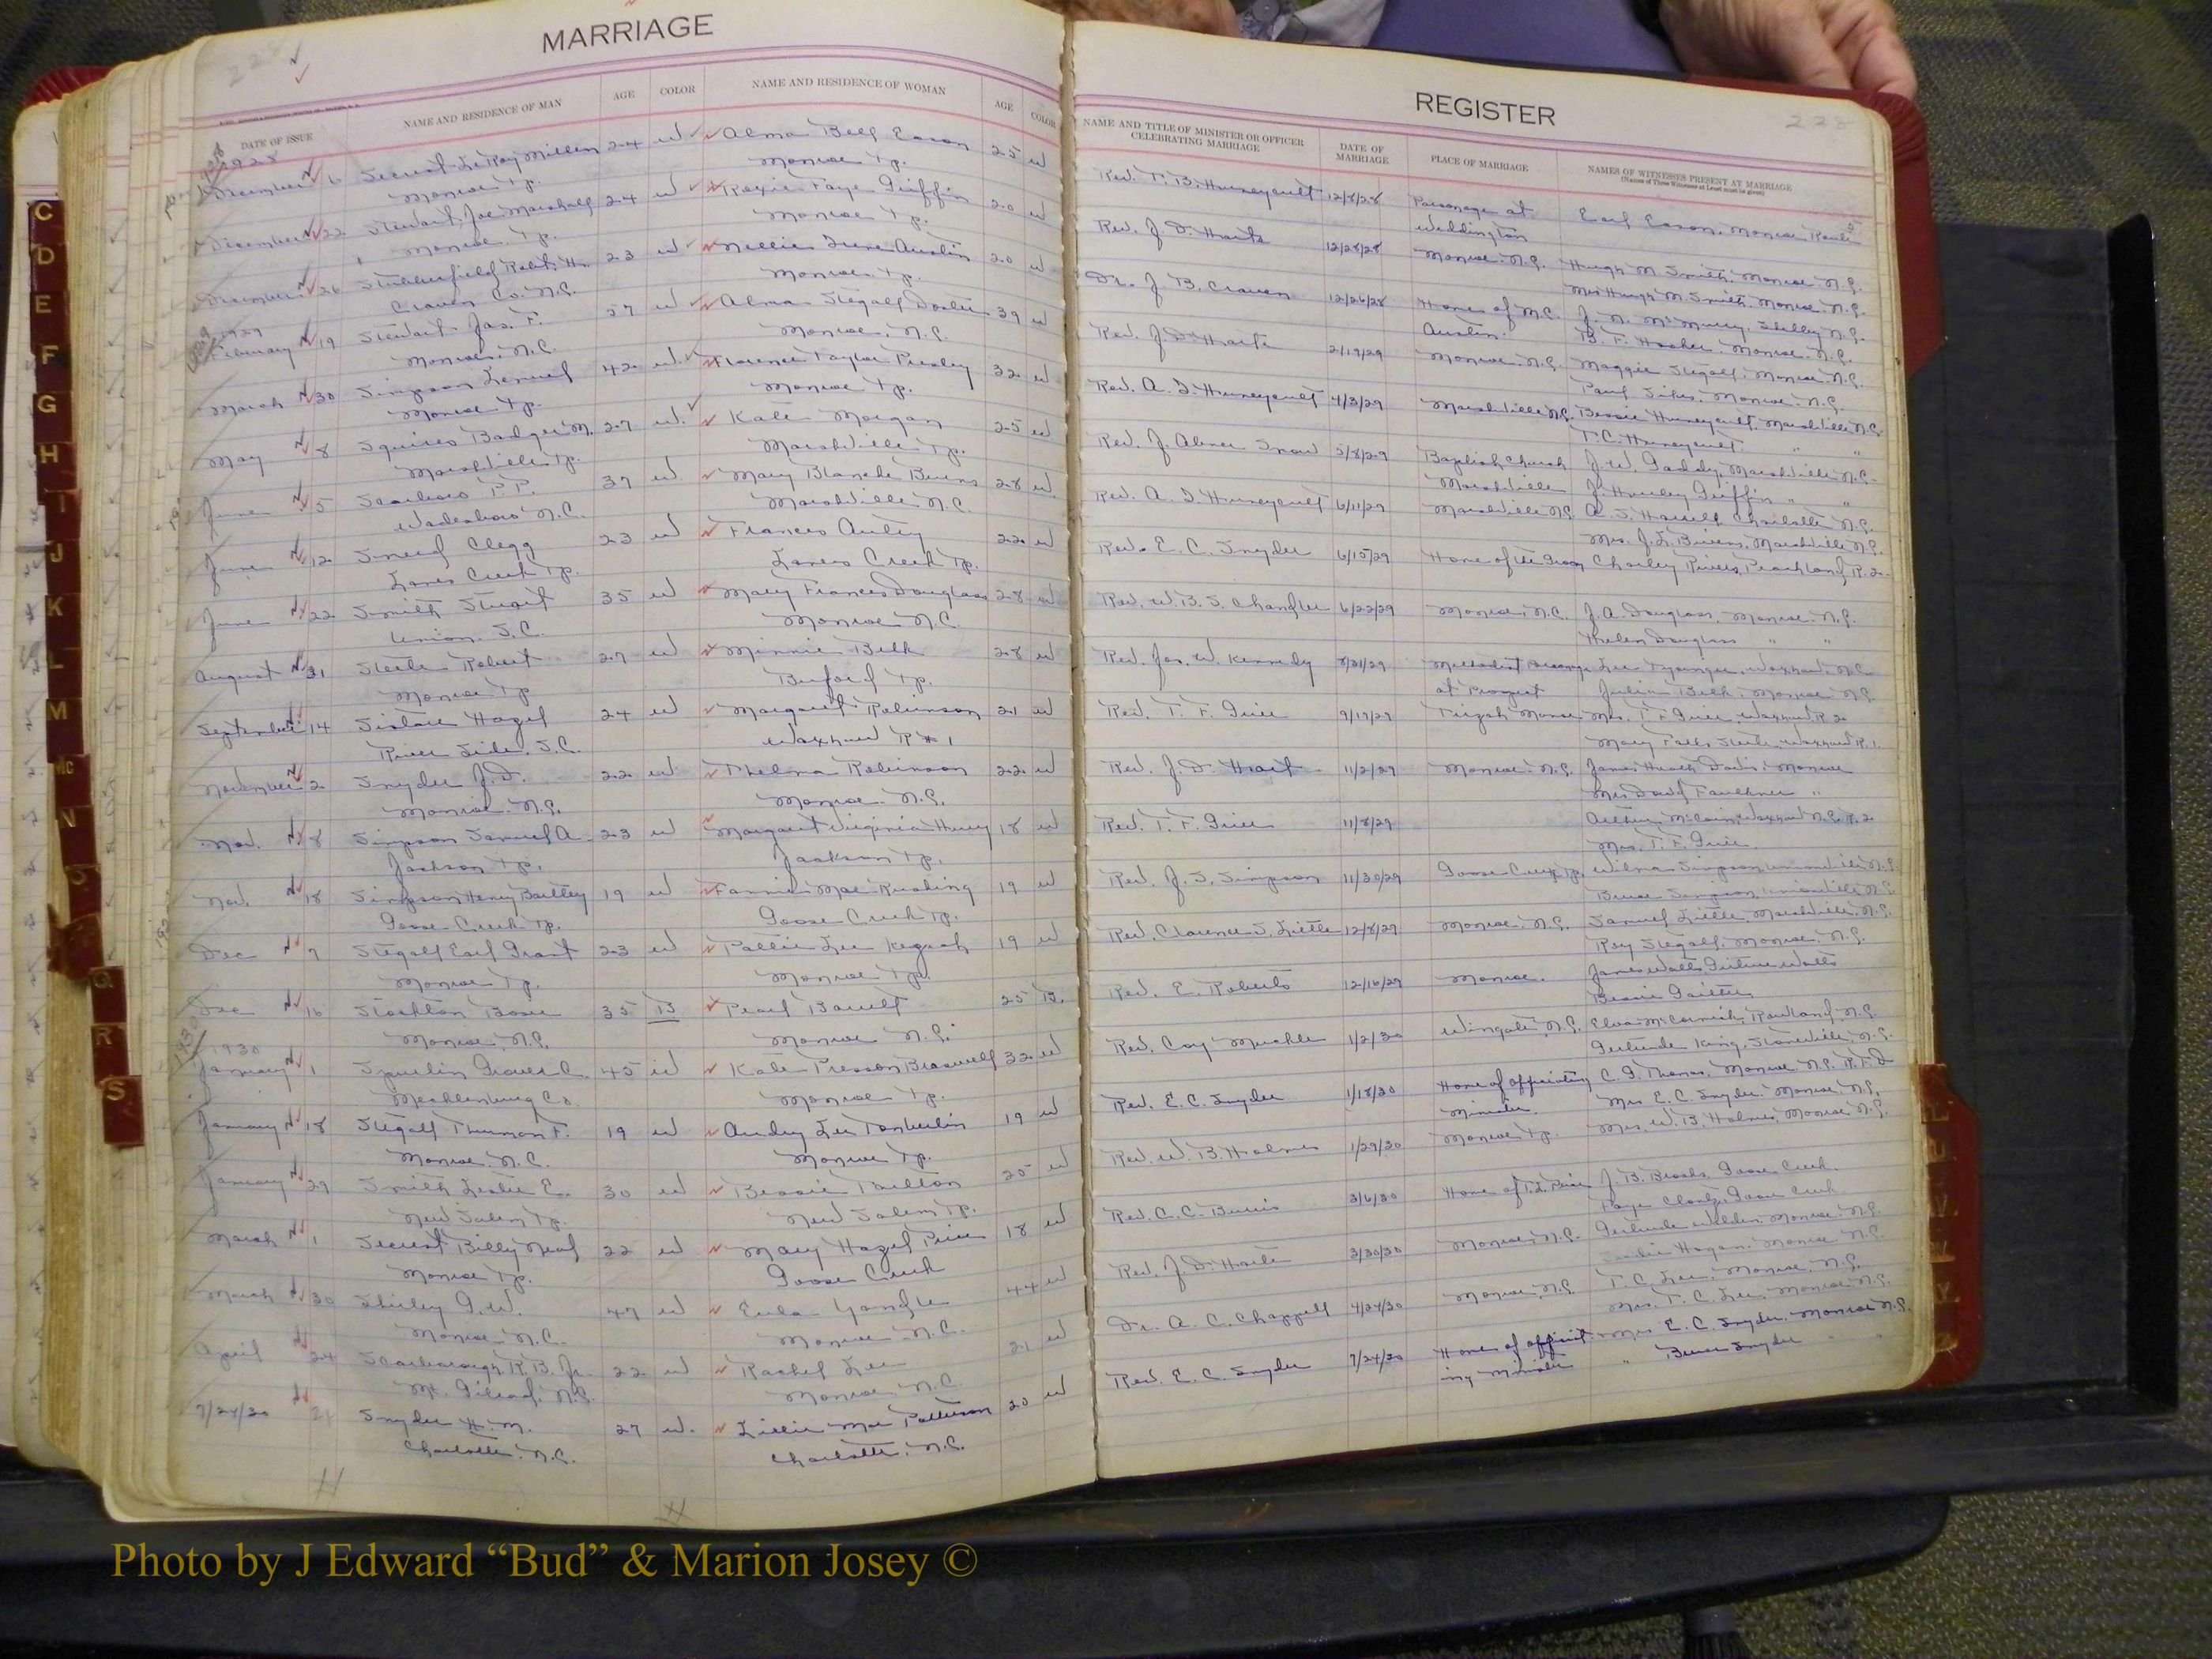 MARRIAGE
228
DATE OF ISSUE
NAME AND RESIDENCE OF MAN
AGE
COLOR
NAME AND RESIDENCE OF WOMAN
AGE
COLOR
1928
December 6 Secrest Le Roy Millen 24 W Alma Bell Eason 25 W
Monroe Tp. Monroe Tp.
December 22 Stewart, Joe Marshall 24 W Roxie Faye Griffin 20 W
Monroe Tp. Monroe Tp.
December 26 Stubberfield Robt. H. 23 W Nellie June Austin 20 W
Craven Co. N.C. Monroe Tp.
1929
February 19 Stewart Jas. F. 57 W Alma Stegall Doster 39 W
Monroe, N.C. Monroe, N.C.
March 30 Simpson Lemuel 42 W. Florence Taylor Presley 32 W
Monroe Tp. Monroe Tp.
May 8 Squires Badger M. 27 W. Kate Morgan 25 W
Marshville Tp. Marshville Tp.
June 5 Scarboro P.P. 37 W Mary Blanche Burns 28 W.
Wadesboro N.C. Marshville N.C.
June 12 Sneed Clegg 23 W Frances Autry 22 W
Lanes Creek Tp. Lanes Creek Tp.
June 22 Smith Stuart 35 W Mary Frances Douglass 28 W
Union. S.C. Monroe N.C.
August 31 Steele Robert 27 W Minnie Belk 28 W
Monroe Tp Buford Tp.
September 14 Sistare Hazel 24 W Margaret Robinson 21 W
River Side, S.C. Waxhaw R #1
November 2 Snyder J.D. 22 W Thelma Robinson 22 W
Monroe N.C. Monroe N.C.
Nov. 8 Simpson Samuel A. 23 W Margaret Virginia Henry 18 W
Jackson Tp. Jackson Tp.
Nov. 18 Simpson Henry Bartley 19 W Fannie Mae Rushing 19 W
Goose Creek Tp. Goose Creek Tp.
Dec 7 Stegall Earl Grant 23 W Pattie Lee Keziah 19 W
Monroe Tp. Monroe Tp.
Dec 16 Stockton 35 B Pearl 25 B.
Monroe, N.C. Monroe N.C.
1930
January 1 Spurlin Grover C. 45 W Kate Presson Braswell 32 W
Mecklenburg Co. Monroe Tp.
January 18 Stegall Thurman F. 19 W Audry Lee Tomberlin 19 W
Monroe N.C. Monroe Tp.
January 29 Smith Leslie E. 30 W Bessie 25 W
New Salem Tp. New Salem Tp.
March 1 Secrest Billy Neal 22 W Mary Hazel Price 18 W
Monroe Tp. Goose Creek
March 30 Shirley G.W. 47 W Eula Yandle 44 W
Monroe N.C. Monroe N.C.
April 24 Scarborough R.B. Jr. 22 W Rachel Lee 21 W
Mt. Gilead, N.C. Monroe N.C.
7/24/30 Snyder H.M. 27 W. Lillie Mae Patterson 20 W
Charlotte, N.C. Charlotte, N.C.
REGISTER
NAME AND TITLE OF MINISTER OR OFFICER CELEBRATING MARRIAGE
DATE OF MARRIAGE
PLACE OF MARRIAGE
NAMES OF WITNESSES PRESENT AT MARRIAGE
(Names of Three Witnesses at Least must be given)
Rev. T. B. Huneycutt 12/8/28 Parsonage at Earl Eason, Monroe Route 5
Weddington
Rev. J. D. Harte 12/28/28 Monroe N.C. Hugh M. Smith, Monroe N.C.
Mrs Hugh M. Smith, Monroe N.C.
Dr. J. B. Craven 12/26/28 Home of M.C. J. N. McMurry, Shelby N.C.
Austin. B. F. Hooker, Monroe N.C.
Rev. J. D. Harte 2/19/29 Monroe N.C. Maggie Stegall, Monroe N.C.
Paul Sikes, Monroe N.C.
Rev. A. J. Huneycutt 4/3/29 Marshville N.C. Bessie Huneycutt, Marshville N.C.
T. C. Huneycutt " "
Rev. J. Abner Snow 5/8/29 Baptist Church J. W. Gaddy, Marshville N.C.
Marshville J. Hurley Griffin " "
Rev. A. J. Huneycutt 6/11/29 Marshville N.C. A. S. Harrell, Charlotte N.C.
Mrs. J. L. Bivens, Marshville N.C.
Rev. E. C. Snyder 6/15/29 Home of the Groom Charley Rivers, Peachland, R. 2.
Rev. W. B. S. Chandler 6/22/29 Monroe, N.C. J. A. Douglass, Monroe N.C.
Helen Douglass " "
Rev. Jas. W. Kennedy 8/31/29 Methodist Parsonage Lee Waxhaw, N.C.
at Prospect Julia Belk, Monroe N.C.
Rev. T. F. Grier 9/17/29 Tirzah Manse Mrs. T. F. Grier, Waxhaw, R. 2
Mary Steele, Waxhaw R. 1.
Rev. J. D. Hart 11/2/29 Monroe N.C. James Heath Davis, Monroe
Mrs David Faulkner "
Rev. T. F. Grier 11/8/29 Arthur McCain, Waxhaw N.C. R. 2
Mrs. T. F. Grier
Rev. J. S. Simpson 11/30/29 Goose Creek Tp. Wilma Simpson, Unionville N.C.
Simpson, Unionville N.C.
Rev. Clarence S. Little 12/8/29 Monroe, N.C. Samuel Little, Marshville N.C.
Roy Stegall, Monroe, N.C.
Rev. E. Roberts 12/16/29 Monroe. James Watts Watts
Bessie
Rev. Coy Muckle 1/2/30 Wingate, N.C. Elva McCormick, Rowland, N.C.
Gertrude King, Stoneville, N.C.
Rev. E. C. Snyder 1/18/30 Home of officiating C. G. Thomas, Monroe N.C. R.F.D.
Minister. Mrs E. C. Snyder, Monroe N.C.
Rev. W. B. Holmes 1/29/30 Monroe Tp. Mrs. W. B. Holmes, Monroe N.C.
Rev. C. C. Burris 3/6/30 Home of T. L. Price J. B. Brooks, Goose Creek
Faye Goose Creek
Rev. J. D. Harte 3/30/30 Monroe, N.C. Gertrude Monroe N.C.
Hogan, Monroe N.C.
Dr. A. C. Chappell 4/24/30 Monroe, N.C. T. C. Lee, Monroe, N.C.
Mrs. T. C. Lee, Monroe N.C.
Rev. E. C. Snyder 7/24/30 Home of officiat- Mrs E. C. Snyder, Monroe N.C.
ing Minister " Snyder " "
C
D
E
F
G
H
I
J
K
L
M
Mc
N
O
Q
R
S
Photo by J Edward “Bud” & Marion Josey ©